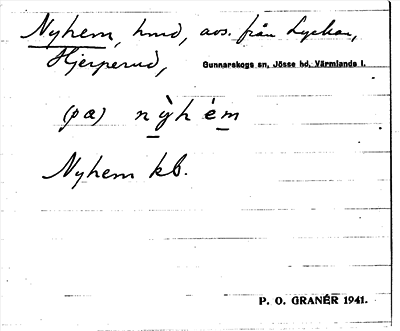 Nyhem, hmd, avs. från Lyckan,
Hjerperud, Gunnarskogs sn, Jösse hd, Värmlands l.
(pa) nỳhém
Nyhem kb.
P. O. GRANÉR 1941.